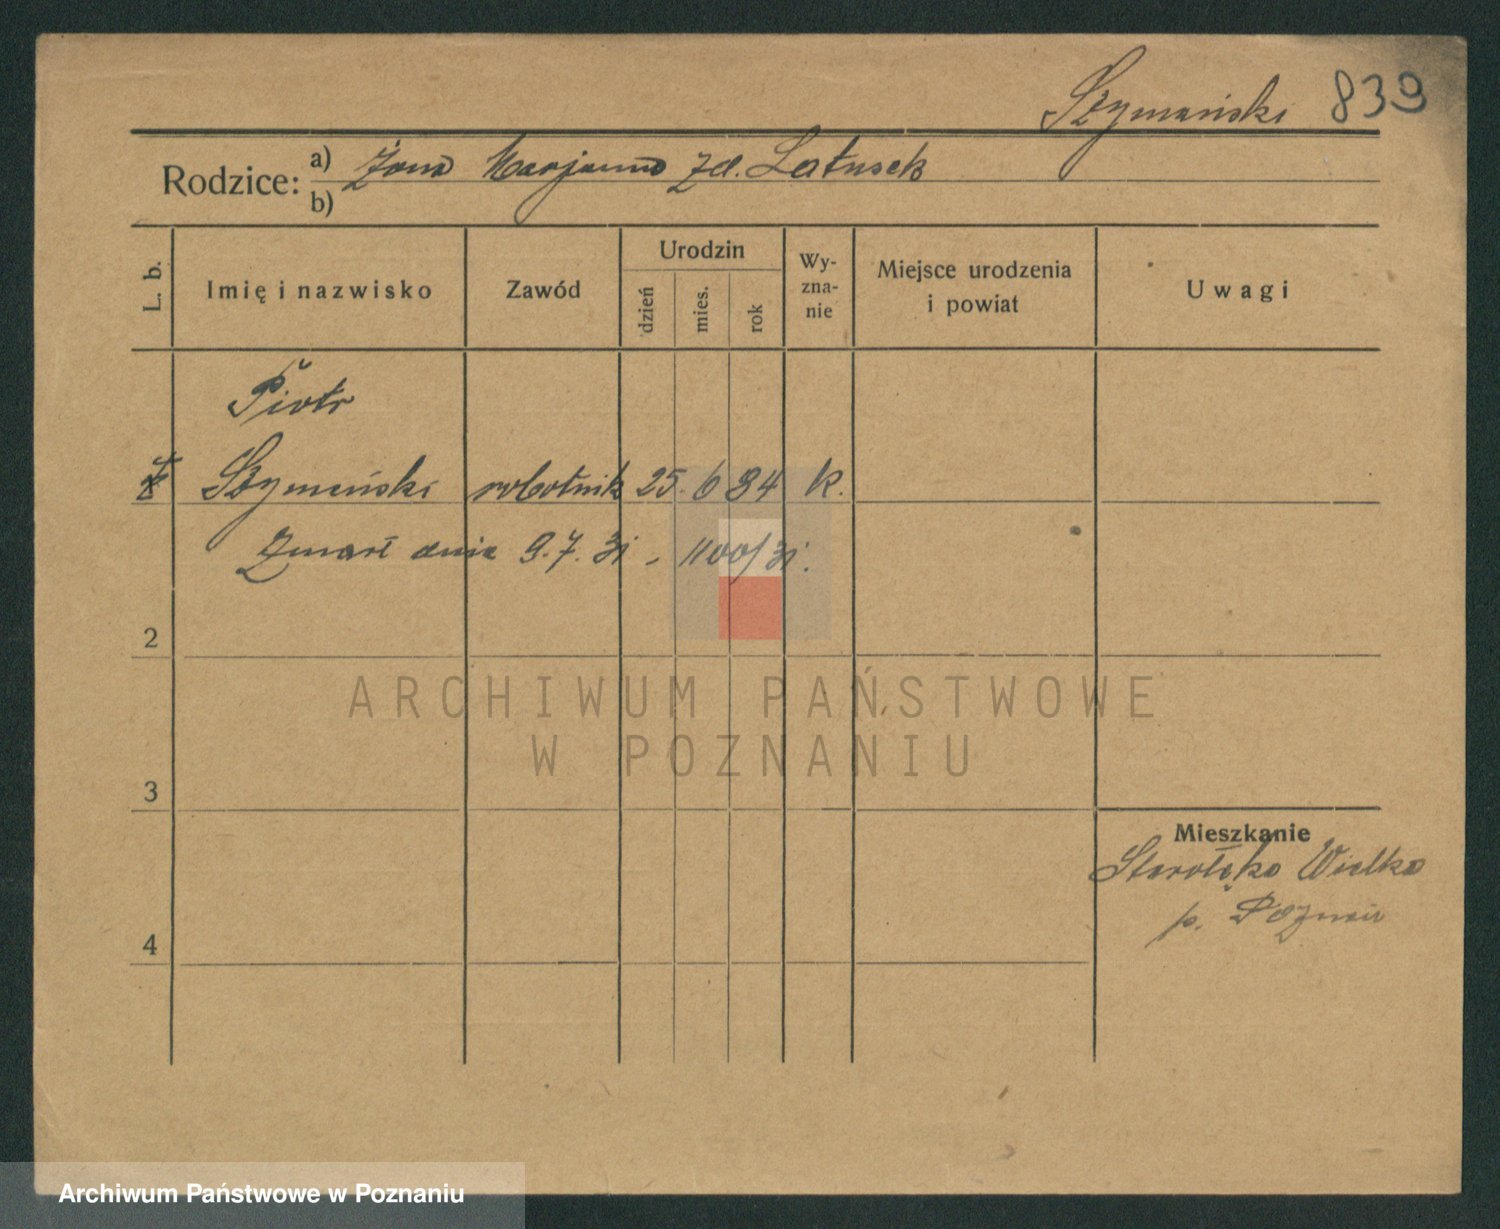 Szymański 839
Rodzice: a) Żona Marjanna zd. Latusek
b)
L. b.
Imię i nazwisko
Zawód
Urodzin
dzień
mies.
rok
Wy-
zna-
nie
Miejsce urodzenia
i powiat
Uwagi
Piotr
Szymański robotnik 25. 6 84 k.
Zmarł dnia 9.7.31 - 1100/31.
2
ARCHIWUM PAŃSTWOWE
W POZNANIU
3
Mieszkanie
Starołęka Wielka
p. Poznań
4
Archiwum Państwowe w Poznaniu